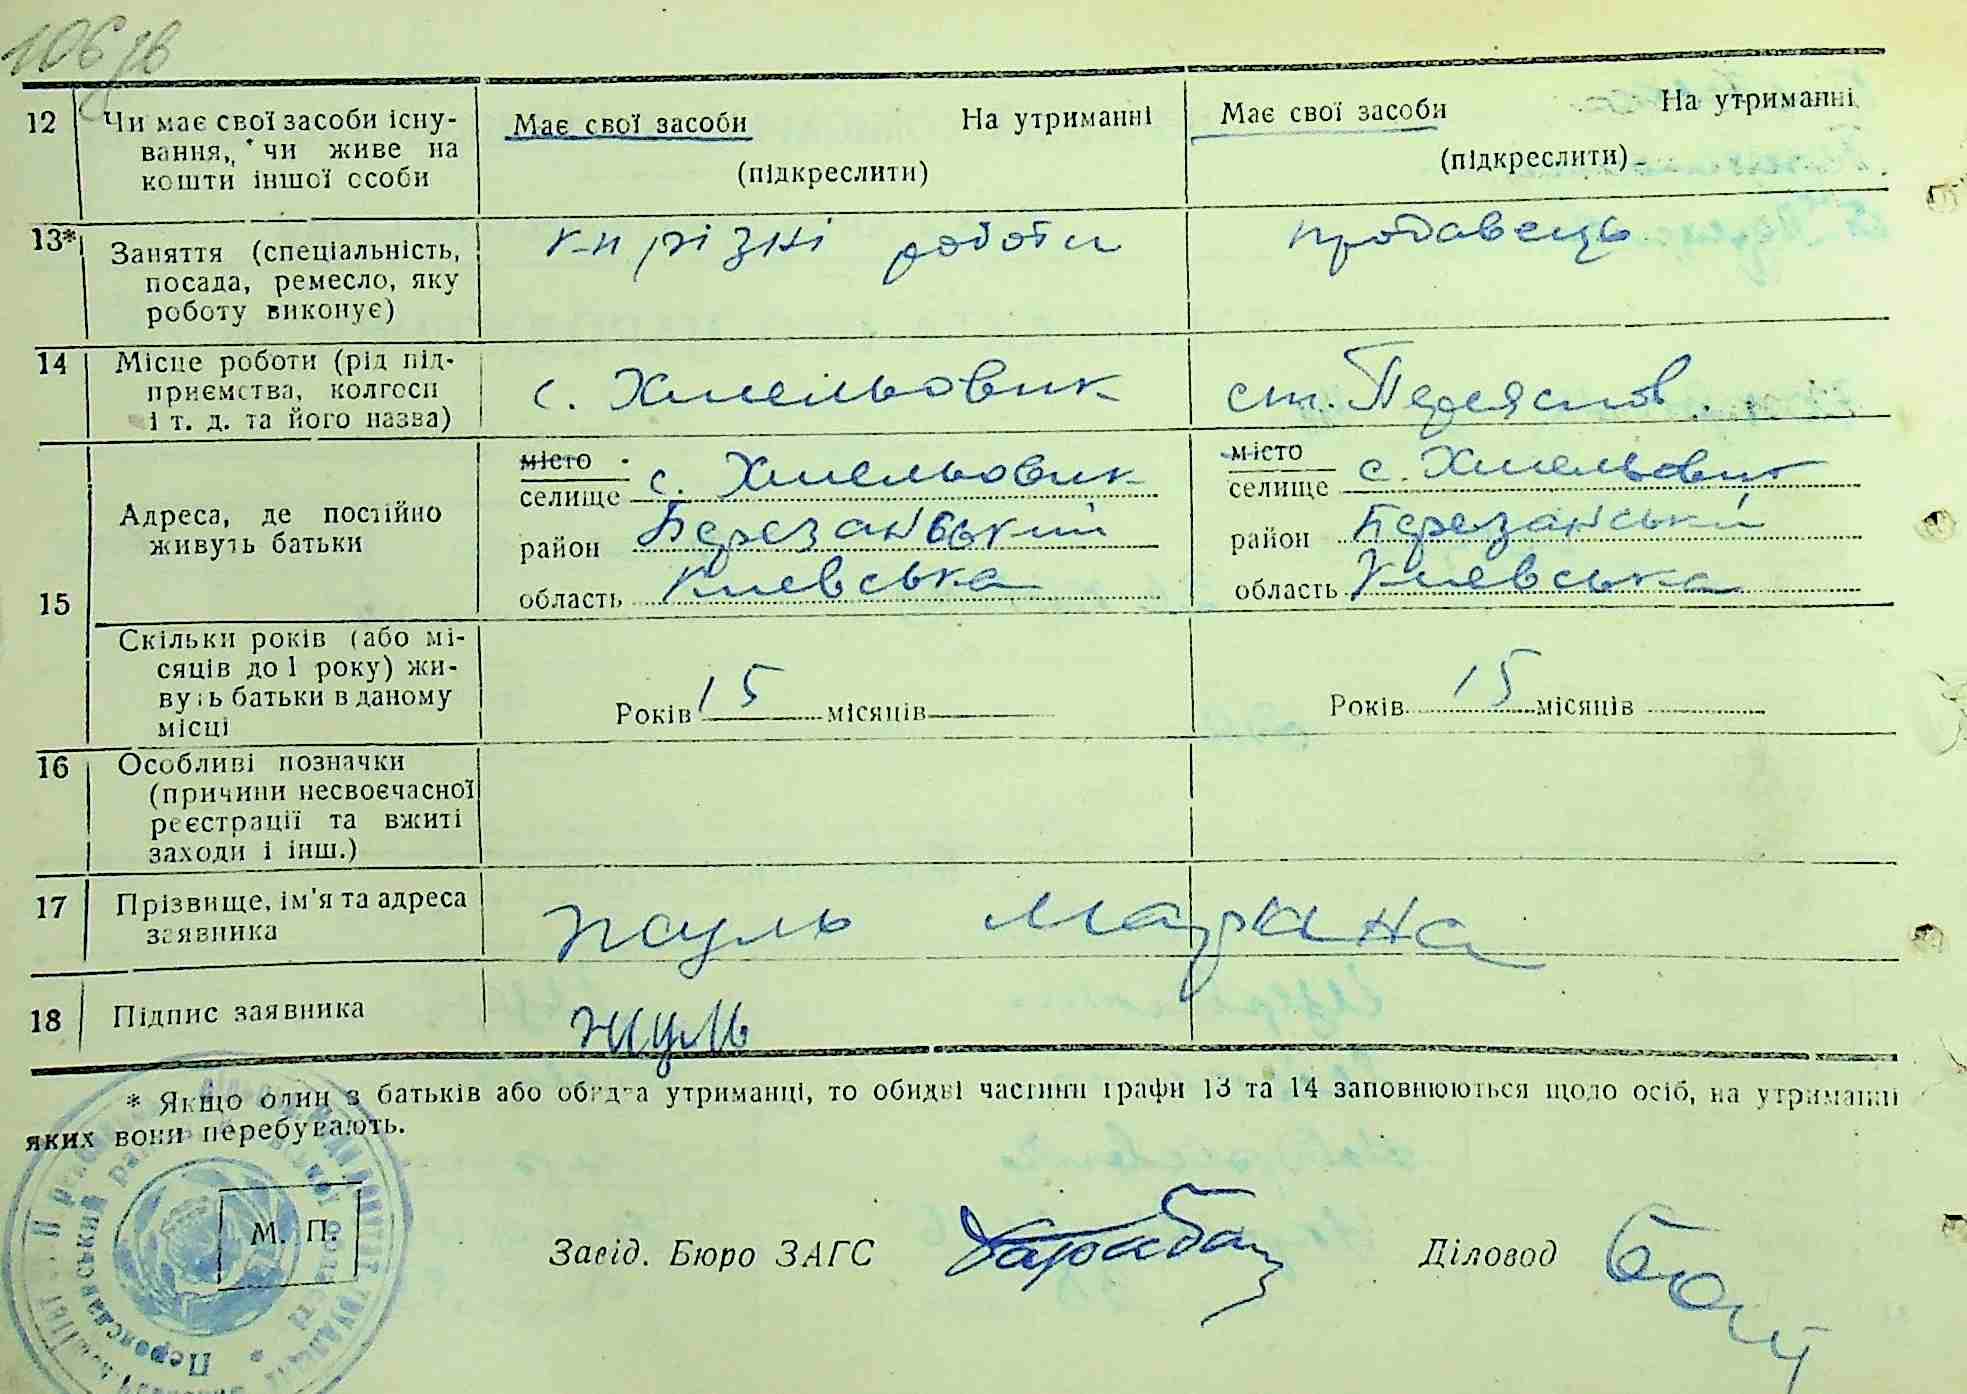 106 зв
12 Чи має свої засоби існу- Має свої засоби На утриманні Має свої засоби На утриманні
вання, чи живе на (підкреслити) (підкреслити)
кошти іншої особи
13* Заняття (спеціальність, різні роботи продавець
посада, ремесло, яку
роботу виконує)
14 Місце роботи (рід під- с. Хмельовик ст. Переяслов.
приємства, колгосп
і т. д. та його назва)
15 Адреса, де постійно
живуть батьки
місто
селище с. Хмельовик
район Березанський
область Киевська
місто
селище с. Хмельовик
район Березанський
область Киевська
Скільки років (або мі-
сяців до 1 року) жи-
вуть батьки в даному
місці
Років 15 місяців
Років 15 місяців
16 Особливі позначки
(причини несвоєчасної
реєстрації та вжиті
заходи і інш.)
17 Прізвище, ім'я та адреса Жуль Марина
заявника
18 Підпис заявника Жуль
* Якщо один з батьків або обидва утриманці, то обидві частини графи 13 та 14 заповнюються щодо осіб, на утриманні
яких вони перебувають.
М. П.
Завід. Бюро ЗАГС
Діловод
Переяславський